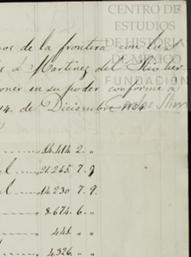 CENTRO DE
ESTUDIOS
DE HISTORIA
DE MÉXICO
FUNDACIÓN
Carlos Slim
de la frontera con la
á Martinez del Rio her
oner en su poder conforme á
14. de Diciembre 1834
21.265. 7. 9.
14.230 7. 9.
8.674. 6. "
441. "
4.326. "